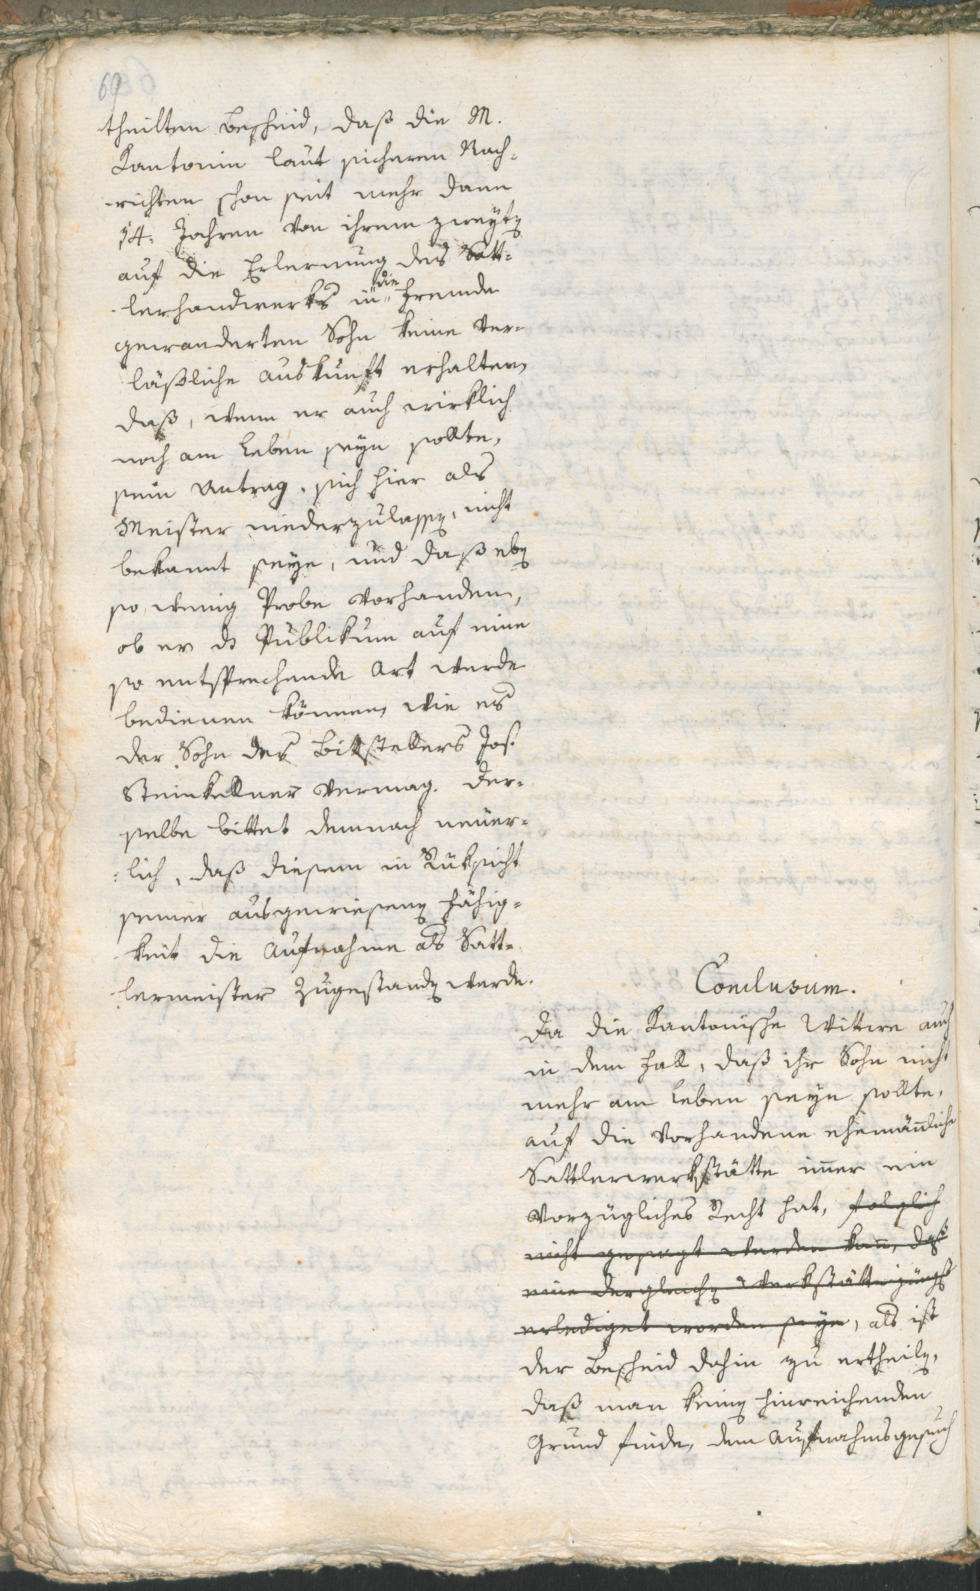 69
theilten Bescheid, daß die M.
Kantonin laut sicheren Nach-
-richten schon seit mehr dann
14. Jahren von ihrem zweyten
auf die Erlernung des Satt-
-lerhandwerks in die Fremde
gewanderten Sohn keine ver-
läßliche Auskunft erhalten,
daß, wenn er auch wirklich
noch am Leben seyn sollte,
sein Antrag, sich hier als
Meister niederzulassen, nicht
bekannt seye, und daß eben
so wenig Probe vorhanden,
ob er ds Publikum auf eine
so entsprechende Art werde
bedienen können, wie es
der Sohn des Bittstellers Jos.
Steinkellner vermag. Der-
selbe bittet demnach neuer-
-lich, daß diesem in Rüksicht
seiner ausgewiesenen Fähig-
keit die Aufnahme als Satt-
-lermeister zugestanden werde.
Conclusum.
Da die Kantonische Wittwe auch
in dem Fall, daß ihr Sohn nicht
mehr am Leben seyn sollte,
auf die vorhandene ehemännliche
Sattlerwerkstätte immer ein
vorzügliches Recht hat, folglich
nicht gesagt werden kann, daß
eine dergleichen Werkstätte jüngst
erlediget worden seye, als ist
der Bescheid dahin zu ertheilen,
daß man keinen hinreichenden
Grund finde, dem Aufnahmsgesuch